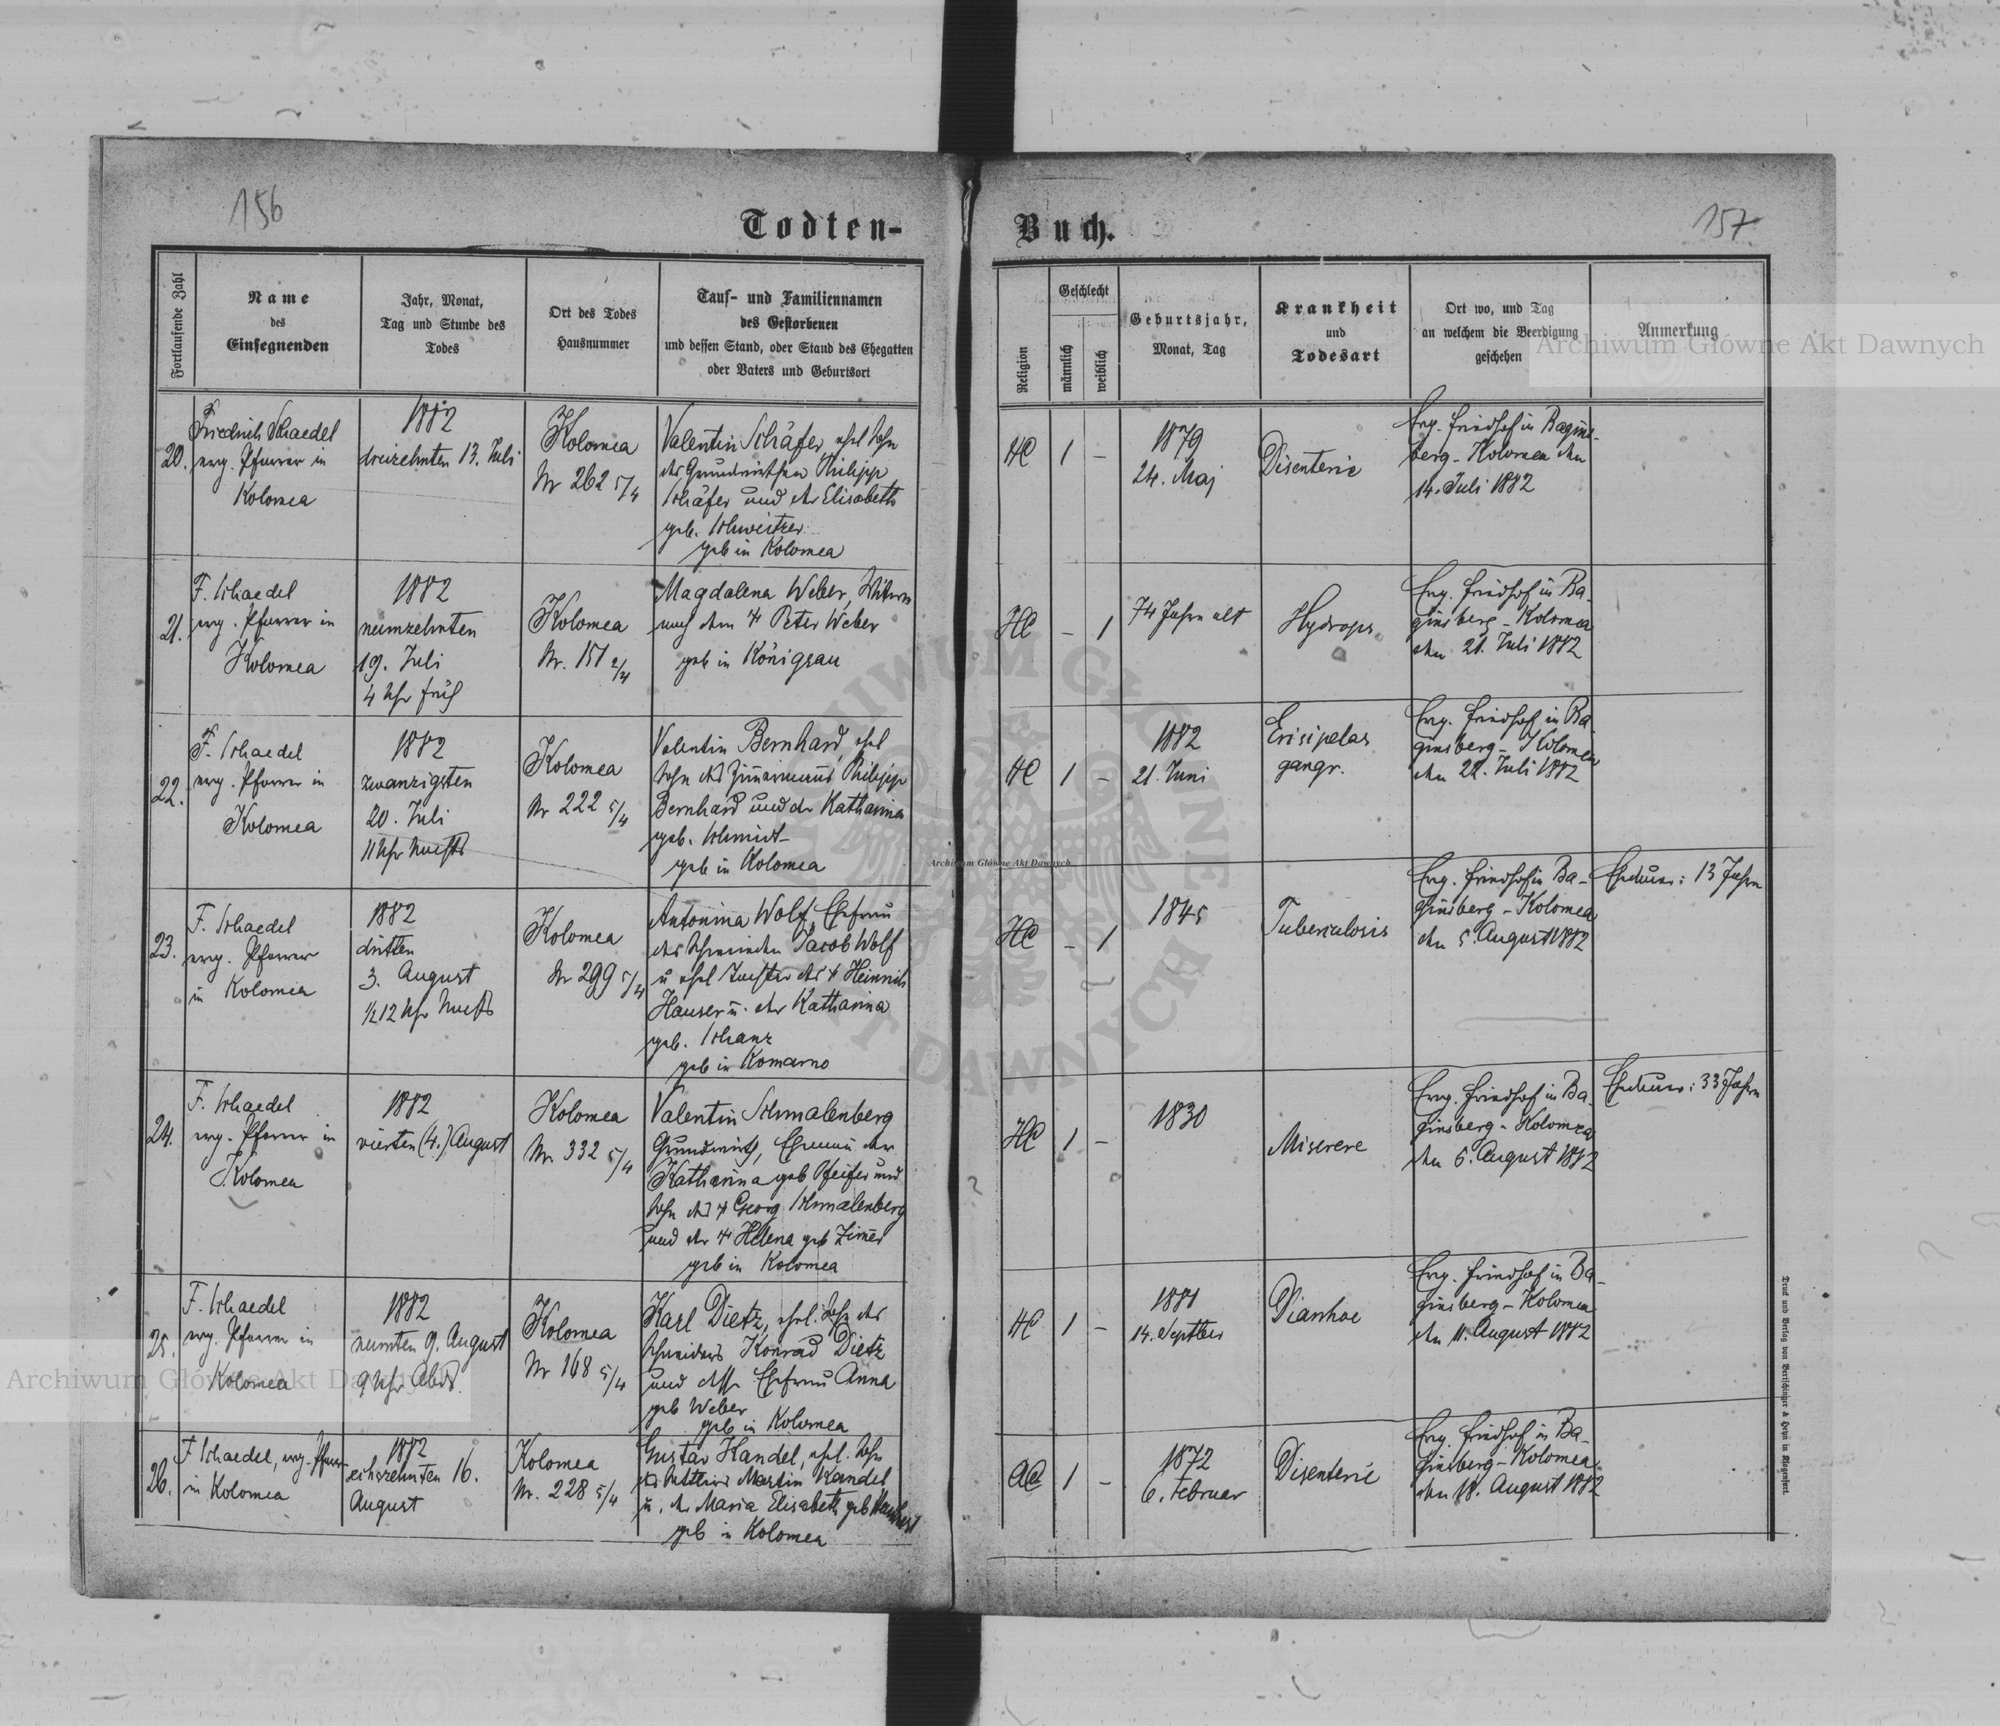 156
Todten-
Fortlaufende Zahl
Name
des
Einsegnenden
Jahr, Monat,
Tag und Stunde des
Todes
Ort des Todes
Hausnummer
Tauf- und Familiennamen
des Gestorbenen
und dessen Stand, oder Stand des Ehegatten
oder Vaters und Geburtsort
20.
Friedrich Schaedel
evg. Pfarrer in
Kolomea
1882
dreizehnten 13. Juli
Kolomea
Nr 262 5/4
Valentin Schäfer, ehel Sohn
des Grundwirthen Philipp
Schäfer und der Elisabeth
geb. Schweitzer
geb in Kolomea
21.
F. Schaedel
evg. Pfarrer in
Kolomea
1882
neunzehnten
19. Juli
4 Uhr früh
Kolomea
Nr. 151 2/4
Magdalena Weber, Witwe
nach dem † Peter Weber
geb in Königsau
22.
F. Schaedel
evg. Pfarrer in
Kolomea
1882
zwanzigsten
20. Juli
11 Uhr Nachts
Kolomea
Nr 222 5/4
Valentin Bernhard, ehel
Sohn des Philipp
Bernhard und der Katharina
geb. Schmidt
geb in Kolomea
23.
F. Schaedel
evg. Pfarrer
in Kolomea
1882
dritten
3. August
1/2 12 Uhr Nachts
Kolomea
Nr 299 5/4
Antonina Wolf, Ehefrau
des Jacob Wolf
u ehel Tochter des † Heinrich
Hauser u. der Katharina
geb. Schanz
geb in Komarno
24.
F. Schaedel
evg. Pfarrer in
Kolomea
1882
vierten (4.) August
Kolomea
Nr. 332 5/4
Valentin Schmalenberg
Grundwirth, Ehemann der
Katharina geb Pfeifer und
Sohn des † Georg Schmalenberg
und der † Helena geb Zimer
geb in Kolomea
25.
F. Schaedel
evg. Pfarrer in
Kolomea
1882
neunten 9. August
9 Uhr Abds.
Kolomea
Nr 168 5/4
Karl Dietz, ehel. Sohn des
Schneiders Konrad Dietz
und dess Ehefrau Anna
geb Weber
geb in Kolomea
26.
F Schaedel, evg. Pfarrer
in Kolomea
1882
sechszehnten 16.
August
Kolomea
Nr. 228 5/4
Gustav Kandel, ehel. Sohn
des Martin Kandel
u. der Maria Elisabeth geb
geb in Kolomea
157
Buch.
Religion
Geschlecht
männlich
weiblich
Geburtsjahr,
Monat, Tag
Krankheit
und
Todesart
Ort wo, und Tag
an welchem die Beerdigung
geschehen
Anmerkung
HC
1
–
1879
24. Maj
Disenterie
Evg. Friedhof in Bagins-
berg - Kolomea den
14. Juli 1882
HC
–
1
74 Jahre alt
Hydrops
Evg. Friedhof in Ba-
ginsberg - Kolomea
den 21. Juli 1882
HC
1
–
1882
21. Juni
Erisipelas
gangr.
Evg. Friedhof in Ba-
ginsberg - Kolomea
den 22. Juli 1882
HC
–
1
1845
Tuberculosis
Evg. Friedhof in Ba-
ginsberg - Kolomea
den 5. August 1882
Ehedauer: 13 Jahre
HC
1
–
1830
Miserere
Evg. Friedhof in Ba-
ginsberg - Kolomea
den 6. August 1882
Ehedauer: 33 Jahre
HC
1
–
1881
14. Septber
Diarrhoe
Evg. Friedhof in Ba-
ginsberg - Kolomea
den 11. August 1882
AC
1
–
1872
6. Februar
Disenterie
Evg. Friedhof in Ba-
ginsberg - Kolomea
den 18. August 1882
Druck und Verlag von Bertschinger & Heyn in Klagenfurt.
Archiwum Główne Akt Dawnych
Archiwum Główne Akt Dawnych
Archiwum Główne Akt Dawnych
ARCHIWUM GŁÓWNE AKT DAWNYCH